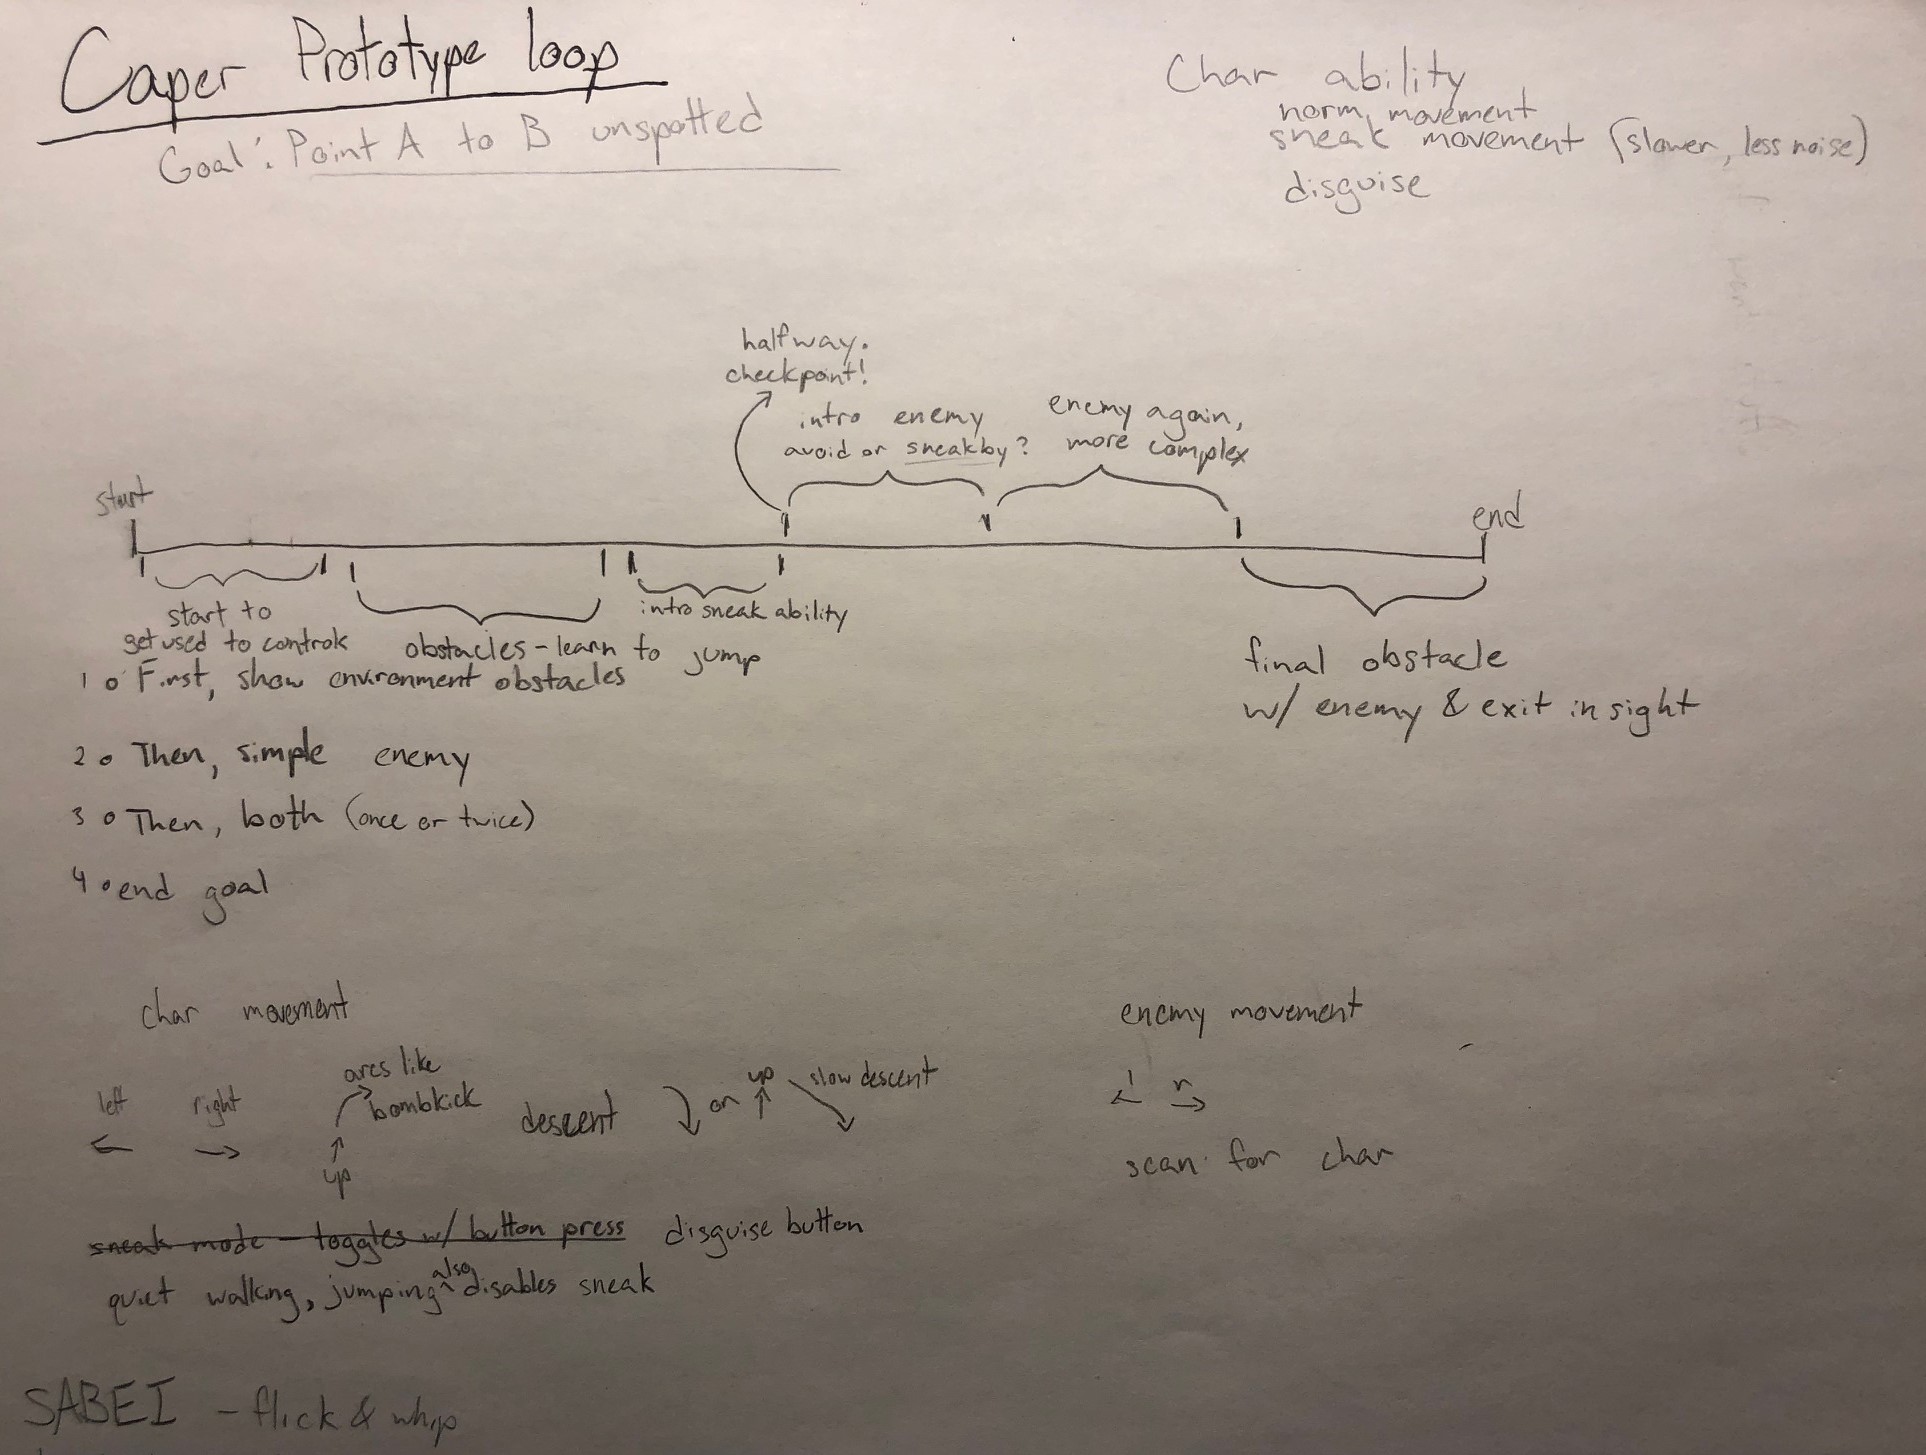 Caper Prototype loop
Goal: Point A to B unspotted
Char ability
norm movement
sneak movement (slower, less noise)
disguise
halfway.
checkpoint!
intro enemy
avoid or sneakby?
enemy again,
more complex
start
end
start to
get used to controls
obstacles - learn to jump
intro sneak ability
final obstacle
w/ enemy & exit in sight
1 o First, show environment obstacles
2 o Then, simple enemy
3 o Then, both (once or twice)
4 o end goal
char movement
left
right
up
arcs like
bombkick
descent
or
up
slow descent
sneak mode - toggles w/ button press
disguise button
quiet walking, jumping also disables sneak
enemy movement
l r
scan for char
SABEI - flick & whip